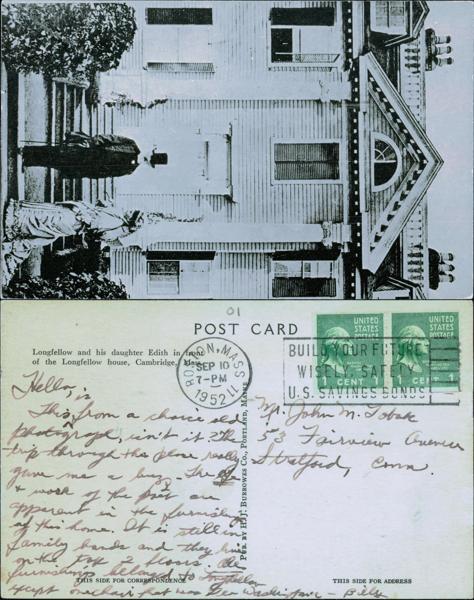 01
POST CARD
Longfellow and his daughter Edith in front
of the Longfellow house, Cambridge, Mass.
BOSTON, MASS.
SEP 10
7-PM
1952
11
BUILD YOUR FUTURE
WISELY, SAFELY
U.S. SAVINGS BONDS
UNITED
STATES
POSTAGE
1 CENT 1
UNITED
STATES
POSTAGE
1 CENT 1
Hello,
This is from a choice old
photograph, isn't it? The
trip through the place really
gave me a bug. The life
& work of the poet are
apparent in the furnishings
of this home. It is still in
family hands and they live
on the top 2 floors. All
furnishings belonged to Longfellow
except one chair that was Geo Washington's – Bill
Mr. John M. Tobak
53 Fairview Avenue
Stratford, Conn.
PUB. BY H. J. BURROWES CO., PORTLAND, MAINE
THIS SIDE FOR CORRESPONDENCE
THIS SIDE FOR ADDRESS